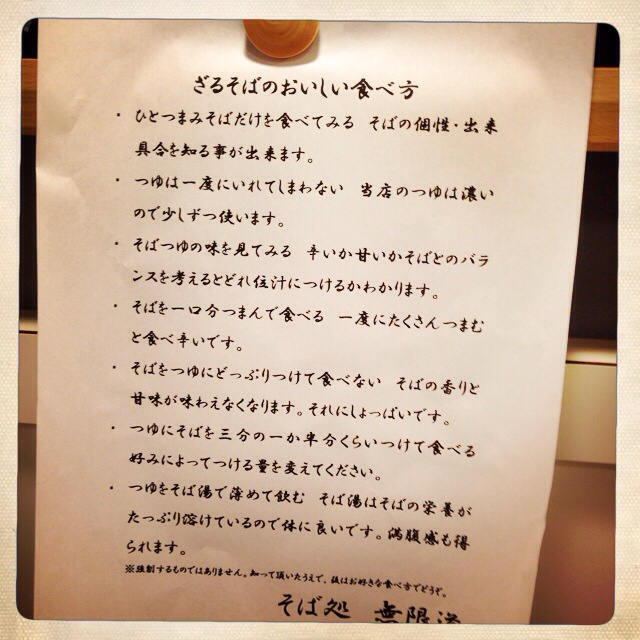 ざるそばのおいしい食べ方
・ひとつまみそばだけを食べてみる　そばの個性・出来
具合を知る事が出来ます。
・つゆは一度にいれてしまわない　当店のつゆは濃い
ので少しずつ使います。
・そばつゆの味を見てみる　辛いか甘いかそばとのバラ
ンスを考えるとどれ位汁につけるかわかります。
・そばを一口分つまんで食べる　一度にたくさんつまむ
と食べ辛いです。
・そばをつゆにどっぷりつけて食べない　そばの香りと
甘味が味わえなくなります。それにしょっぱいです。
・つゆにそばを三分の一か半分くらいつけて食べる
好みによってつける量を変えてください。
・つゆをそば湯で薄めて飲む　そば湯はそばの栄養が
たっぷり溶けているので体に良いです。満腹感も得
られます。
※強制するものではありません。知って頂いたうえで、後はお好きな食べ方でどうぞ。
そば処　無限